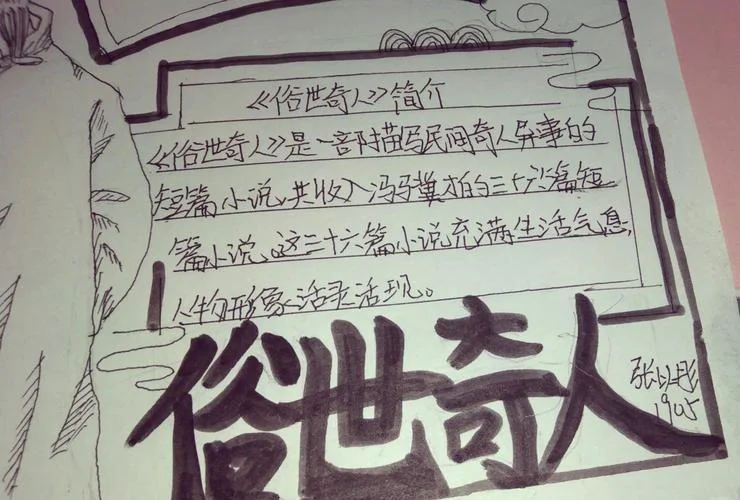 《俗世奇人》简介
《俗世奇人》是一部描写民间奇人异事的
短篇小说,共收入冯骥才的三十六篇短
篇小说。这三十六篇小说充满生活气息,
人物形象活灵活现。
俗世奇人
张
1905